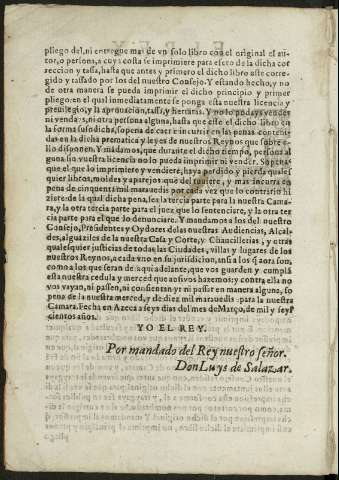 pliego del, ni entregue mai de vn solo libro con el original el au-
tor, o persona, a cuya costa se imprimiere para efeto de la dicha cor
reccion y tassa, hasta que antes y primero el dicho libro este corre-
gido y tassado por los del nuestro Consejo. Y estando hecho, y no
de otra manera se pueda imprimir el dicho principio y primer
pliego: en el qual inmediatamente se ponga esta nuestra licencia y
preuilegio, y la aprouacion, tassa, y herratas. Y no lo podays vender
ni vendays, ni otra persona alguna, hasta que este el dicho libro en
la forma susodicha, so pena de caer e incurrir en las penas conteni-
das en la dicha prematica y leyes de nuestros Reynos que sobre e-
llo disponen. Y mãdamos, que durante el dicho tiempo, persona al
guna sin vuestra licencia no lo pueda imprimir ni vender. So pena
que el que lo imprimiere y vendiere, haya perdido y pierda quales
quier libros, moldes y aparejos que del tuuiere, y mas incurra en
pena de cinquenta mil marauedis por cada vez que lo contrario hi
ziere. de la qual dicha pena, sea la tercia parte para la nuestra Cama-
ra, y la otra tercia parte para el juez que lo sentenciare, y la otra ter
cia parte para el que lo denunciare. Y mandamos a los del nuestro
Consejo, Presidentes y Oydores de las nuestras Audiencias, Alcal-
des, alguaziles de la nuestra Casa y Corte, y Chancillerias, y otras
qualesquier justicias de todas las Ciudades, villas y lugares de los
nuestros Reynos, a cada vno en su jurisdicion, ansi a los q̃ aora son,
como a los que seran de aqui adelante, que vos guarden y cumplã
esta nuestra cedula y merced que ansi vos hazemos: y contra ella no
vos vayan, ni passen, ni consientan yr ni passar en manera alguna, so
pena de la nuestra merced, y de diez mil marauedis para la nuestra
Camara. Fecha en Azeca a seys dias del mes de Março, de mil y seys
cientos años.
YO EL REY.
Por mandado del Rey nuestro señor.
Don Luys de Salazar.